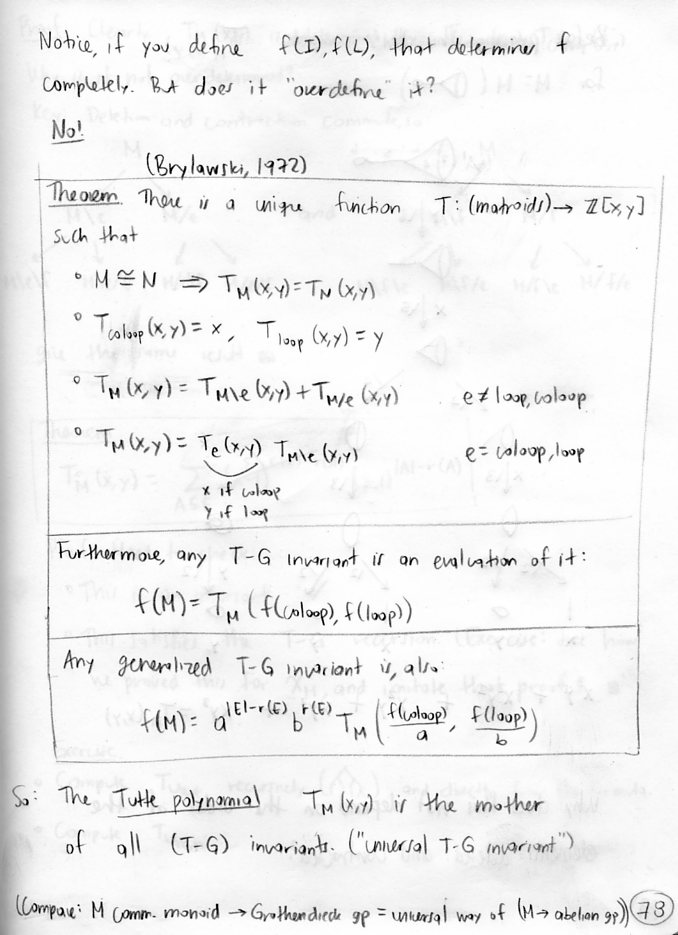 Notice, if you define f(I), f(L), that determines f
completely. But does it "overdefine" it?
No!
(Brylawski, 1972)
Theorem. There is a unique function T: (matroids) → ℤ[x,y]
such that
∘ M ≅ N ⟹ T_M(x,y) = T_N(x,y)
∘ T_coloop(x,y) = x, T_loop(x,y) = y
∘ T_M(x,y) = T_M\e(x,y) + T_M/e(x,y) e ≠ loop, coloop
∘ T_M(x,y) = T_e(x,y) T_M\e(x,y) e = coloop, loop
x if coloop
y if loop
Furthermore, any T-G invariant is an evaluation of it:
f(M) = T_M(f(coloop), f(loop))
Any generalized T-G invariant is, also:
f(M) = a^{|E|-r(E)} b^{r(E)} T_M(f(coloop)/a, f(loop)/b)
So: The Tutte polynomial T_M(x,y) is the mother
of all (T-G) invariants. ("universal T-G invariant")
(Compare: M comm. monoid → Grothendieck gp = universal way of (M → abelian gp)) 78